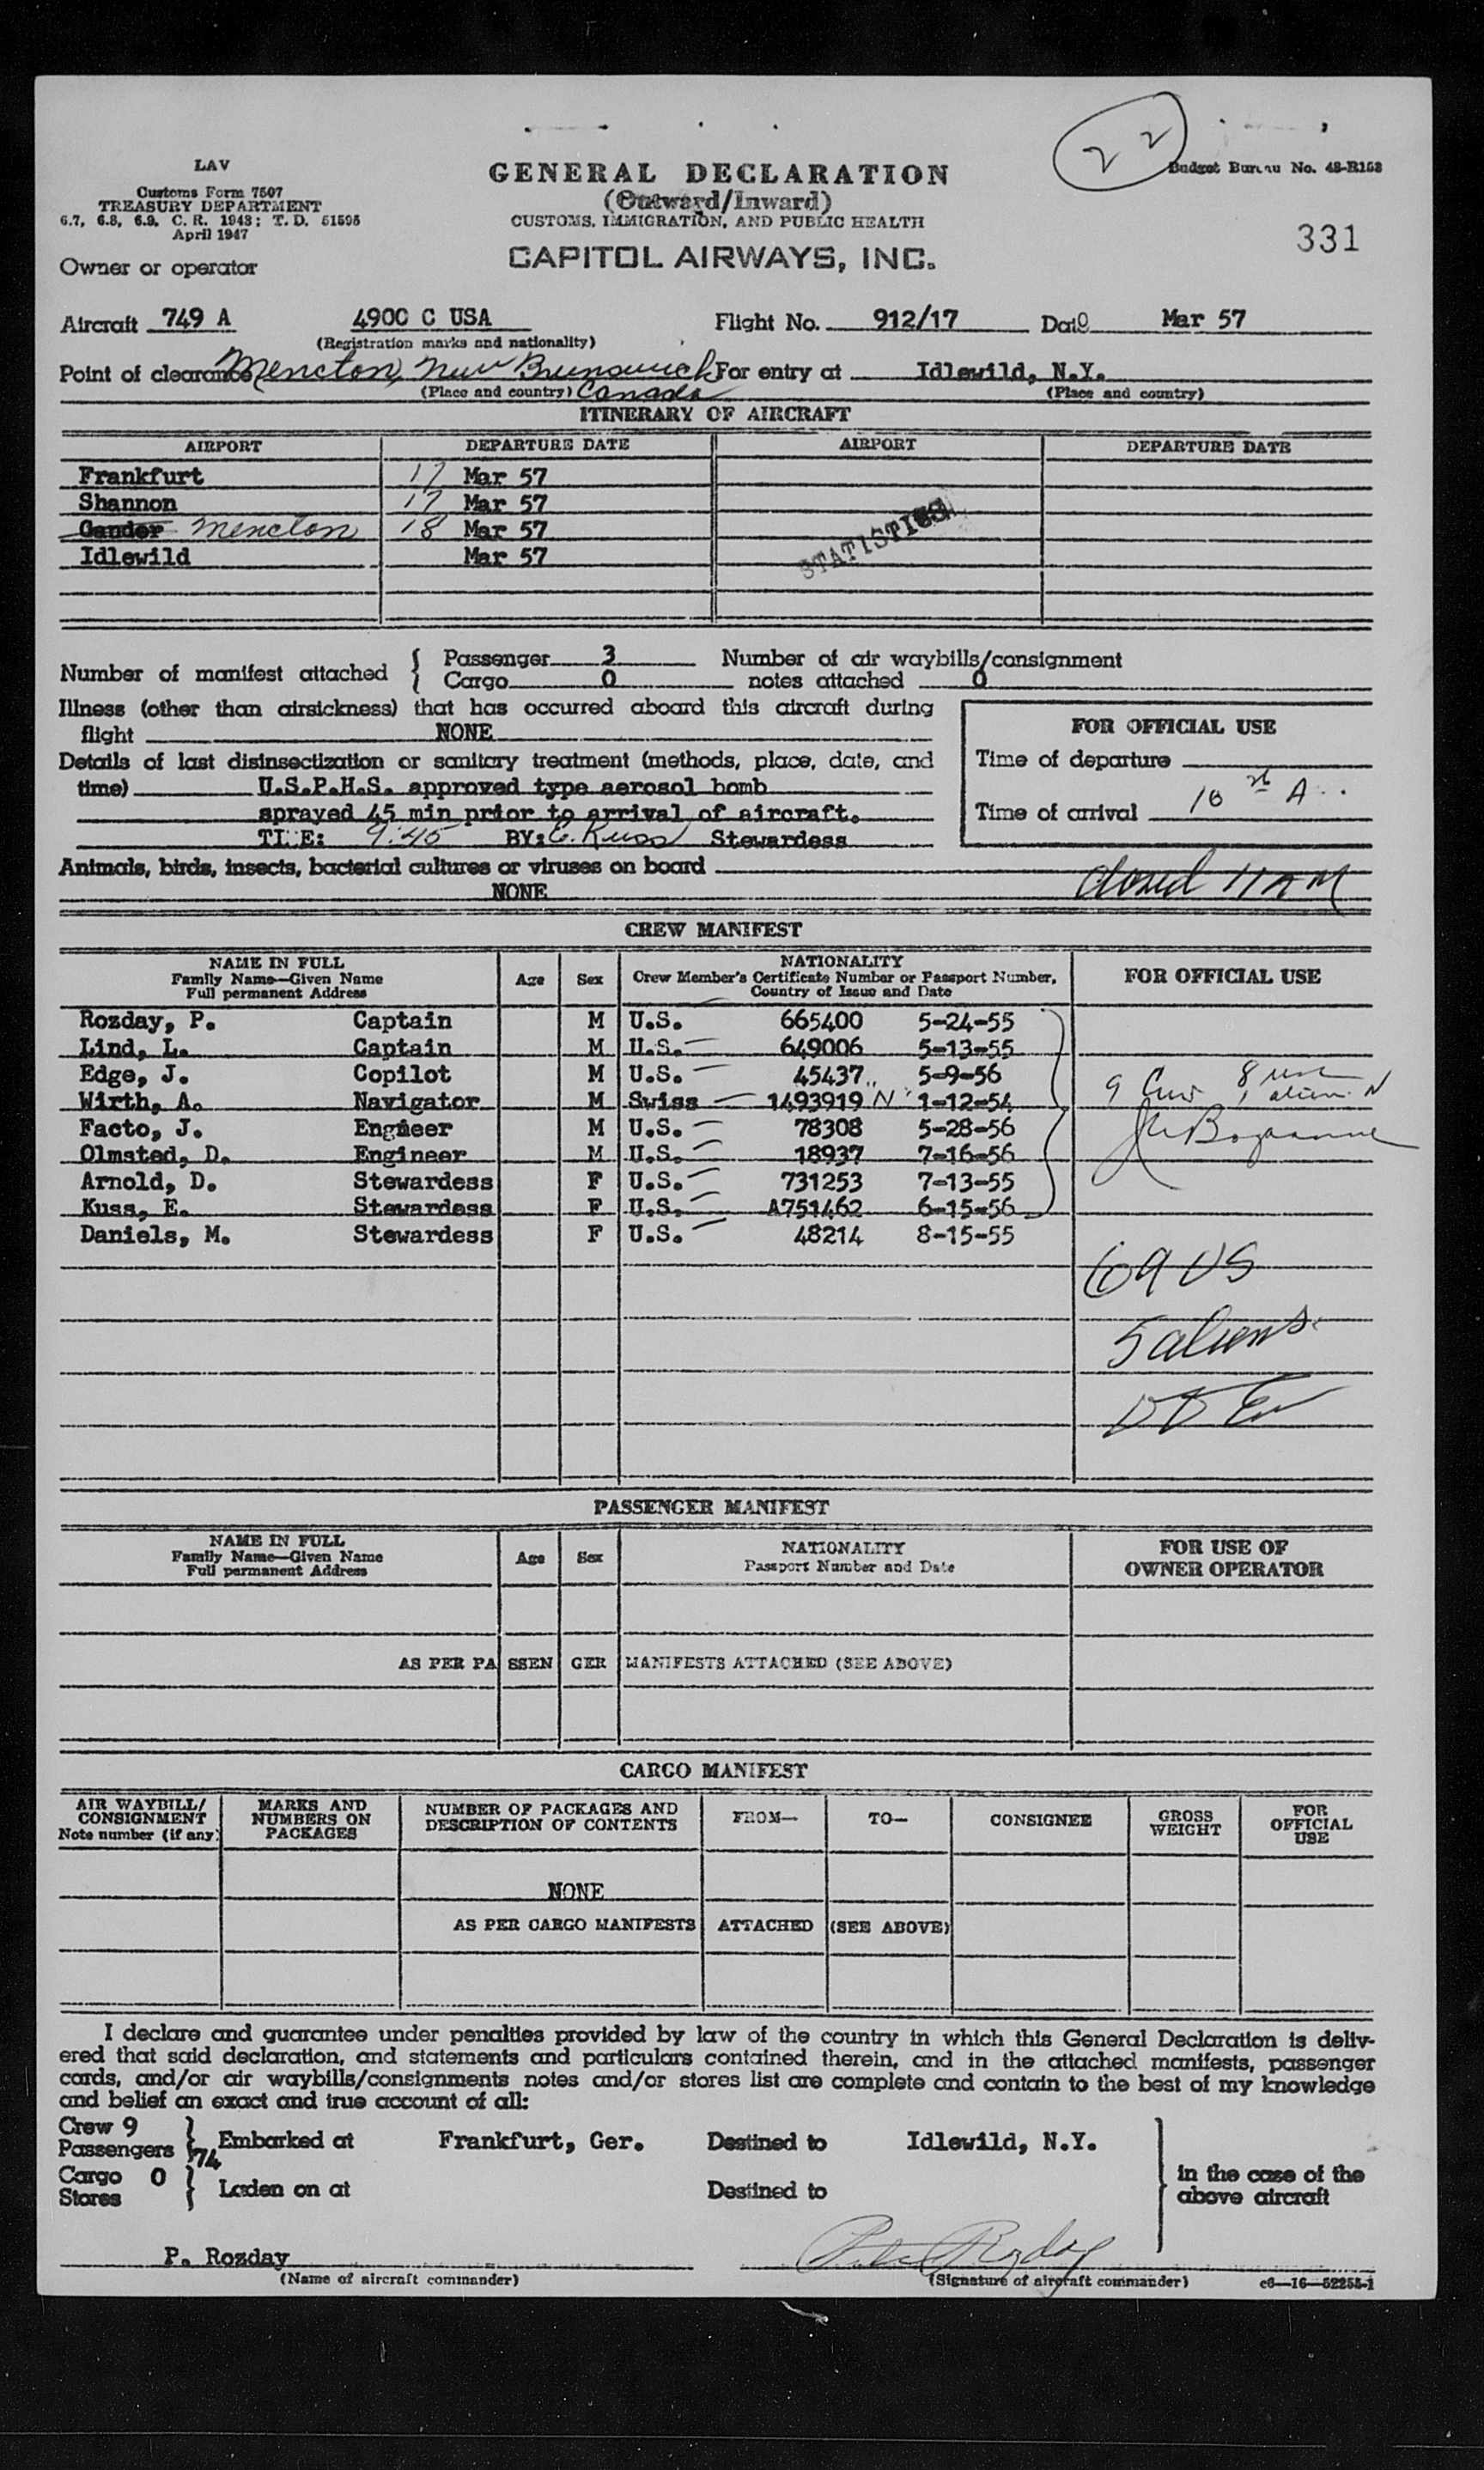 22
LAV
Customs Form 7507
TREASURY DEPARTMENT
6.7, 6.8, 6.9, C. R. 1943; T. D. 51595
April 1947
GENERAL DECLARATION
(Outward/Inward)
CUSTOMS, IMMIGRATION, AND PUBLIC HEALTH
CAPITOL AIRWAYS, INC.
Budget Bureau No. 48-R153
331
Owner or operator
Aircraft 749 A 4900 C USA Flight No. 912/17 Date Mar 57
(Registration marks and nationality)
Point of clearance Mencton, New Brunswick For entry at Idlewild, N.Y.
(Place and country) Canada (Place and country)
ITINERARY OF AIRCRAFT
AIRPORT DEPARTURE DATE AIRPORT DEPARTURE DATE
Frankfurt 17 Mar 57
Shannon 17 Mar 57
Gander Mencton 18 Mar 57
Idlewild Mar 57
STATISTICS
Number of manifest attached { Passenger 3 Number of air waybills/consignment
Cargo 0 notes attached 0
Illness (other than airsickness) that has occurred aboard this aircraft during
flight NONE
Details of last disinsectization or sanitary treatment (methods, place, date, and
time) U.S.P.H.S. approved type aerosol bomb
sprayed 45 min prior to arrival of aircraft.
TIME: 9:45 BY: E. Kuss Stewardess
FOR OFFICIAL USE
Time of departure
Time of arrival 10 A
Animals, birds, insects, bacterial cultures or viruses on board
NONE
closed 11 AM
CREW MANIFEST
NAME IN FULL
Family Name—Given Name
Full permanent Address
Age
Sex
NATIONALITY
Crew Member's Certificate Number or Passport Number,
Country of Issue and Date
FOR OFFICIAL USE
Rozday, P. Captain M U.S. 665400 5-24-55
Lind, L. Captain M U.S. 649006 5-13-55
Edge, J. Copilot M U.S. 45437 5-9-56
Wirth, A. Navigator M Swiss 1493919 N 1-12-54
Facto, J. Engineer M U.S. 78308 5-28-56
Olmsted, D. Engineer M U.S. 18937 7-16-56
Arnold, D. Stewardess F U.S. 731253 7-13-55
Kuss, E. Stewardess F U.S. A751462 6-15-56
Daniels, M. Stewardess F U.S. 48214 8-15-55
9 Crew 8 usc
1 alien N
69 US
5 aliens
PASSENGER MANIFEST
NAME IN FULL
Family Name—Given Name
Full permanent Address
Age
Sex
NATIONALITY
Passport Number and Date
FOR USE OF
OWNER OPERATOR
AS PER PASSENGER MANIFESTS ATTACHED (SEE ABOVE)
CARGO MANIFEST
AIR WAYBILL/
CONSIGNMENT
Note number (if any)
MARKS AND
NUMBERS ON
PACKAGES
NUMBER OF PACKAGES AND
DESCRIPTION OF CONTENTS
FROM—
TO—
CONSIGNEE
GROSS
WEIGHT
FOR
OFFICIAL
USE
NONE
AS PER CARGO MANIFESTS ATTACHED (SEE ABOVE)
I declare and guarantee under penalties provided by law of the country in which this General Declaration is deliv-
ered that said declaration, and statements and particulars contained therein, and in the attached manifests, passenger
cards, and/or air waybills/consignments notes and/or stores list are complete and contain to the best of my knowledge
and belief an exact and true account of all:
Crew 9
Passengers 74 } Embarked at Frankfurt, Ger. Destined to Idlewild, N.Y.
Cargo 0
Stores } Laden on at Destined to
in the case of the
above aircraft
P. Rozday Peter Rozday
(Name of aircraft commander) (Signature of aircraft commander) c6—16—52255-1